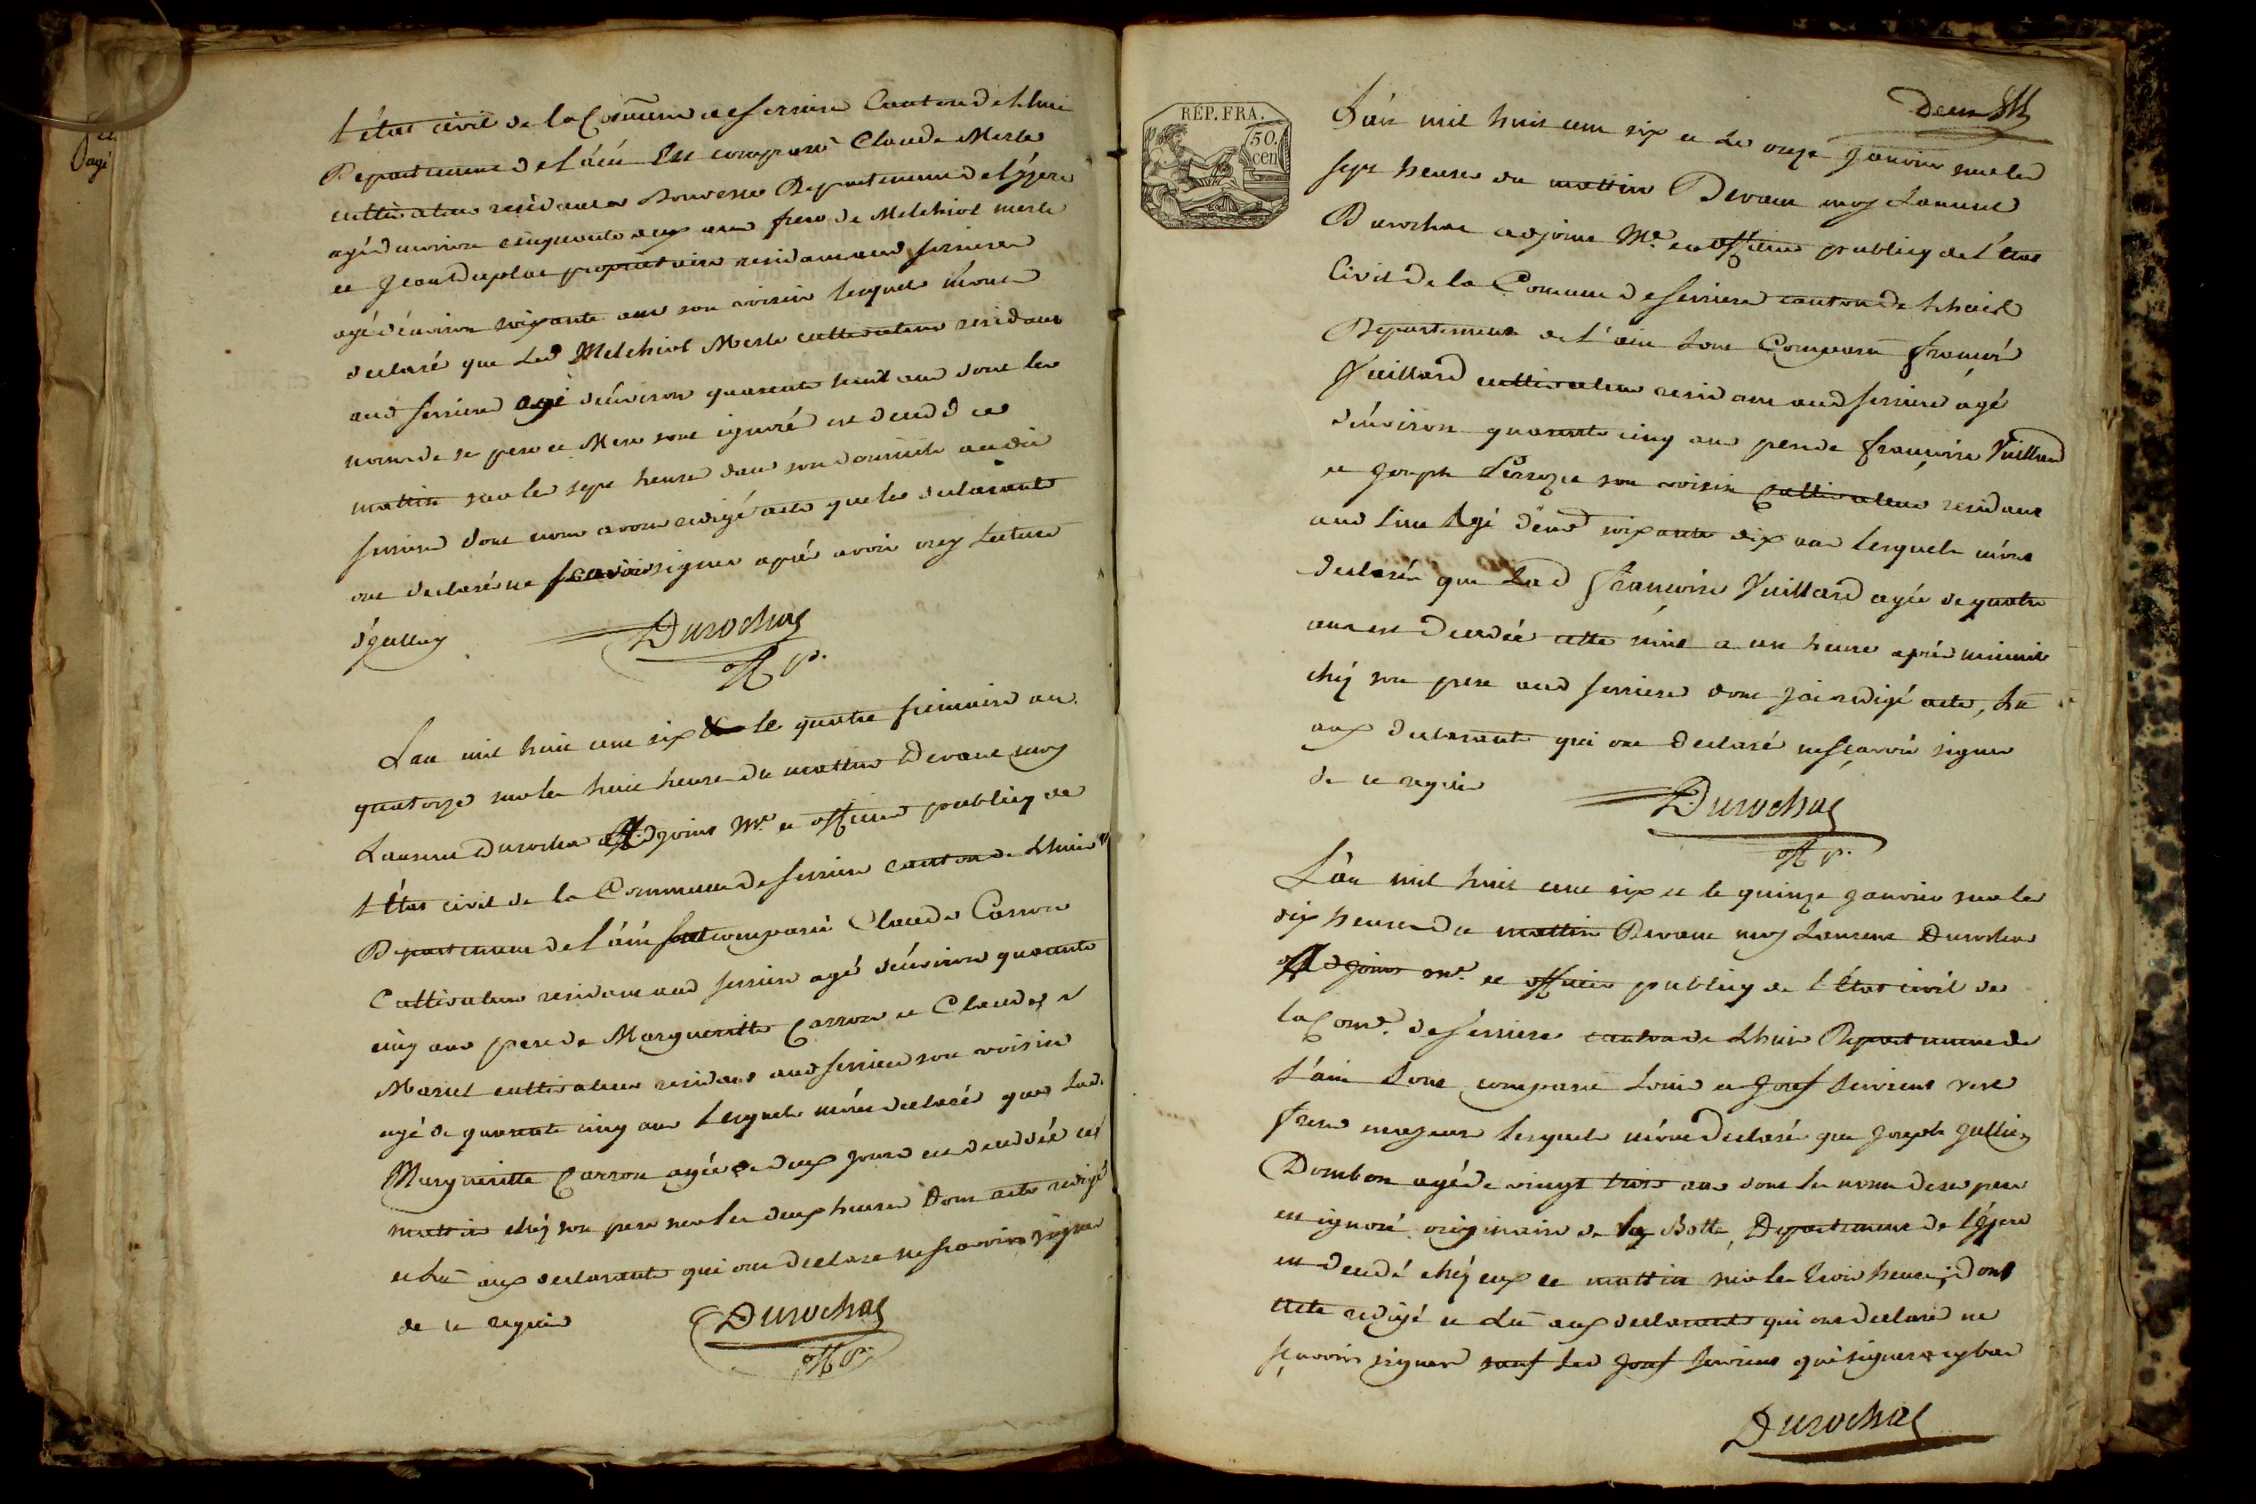 l'état civil de la Commune de serriere Canton de Lhuis
Departement de l'ain Est comparu Claude Merle
cultivateur residant a Bouvesse Departement de l'izere
agé d'environ cinquante deux ans frere de Melchiol merle
et Jean Duplat proprietaire residant aud serriere
agé d'environ soixante ans son voisin lesquels m'ont
declaré que led Melchiol Merle cultivateur residant
aud serriere agé d'environ quarante huit ans dont les
noms de se pere et Mere sont ignoré est decedé ce
mattin sur les sept heures dans son domicile audit
serriere dont nous avons redigé acte que les declarants
ont declaré ne scavoir signer apré avoir eu lecture
Durochat
Off. p.
L'an mil huit cent six & le quatre frimaire an
quatorze sur les huit heures du mattin Devant moy
Laurent Durochat Adjoint Mre et officier publicq de
l'Etat civil de la Commune de serriere canton de Lhuis
Departement de l'ain sont comparu Claude Carron
Cultivateur residant aud serriere agé d'environ quarante
cinq ans pere de Margueritte Carron et Claude
Mariel cultivateur residant aud serriere son voisin
agé de quarante cinq ans Lesquels m'ont declaré que lad.
Margueritte Carron agée de deux jours est decedée ce
mattin chéz son pere sur les deux heures Dont acte redigé
et Lû aux declarants qui ont declaré ne scavoir signer
de ce requis
Durochat
Off. p.
Deux
RÉP. FRA.
50
cen
L'an mil huit cent six et le onze janvier sur les
sept heures du mattin Devant moy Laurent
Durochat adjoint Mre et officier publicq de l'Etat
Civil de la Commune de serriere canton de Lhuis
Departement de l'ain sont Comparu françois
Vuillard cultivateur residant aud serriere agé
d'environ quarante cinq ans pere de françoise Vuillard
et joseph son voisin Cultivateur residant
aud lieu Agé d'env soixante dix ans lesquels m'ont
declaré que Lad françoise Vuillard agée de quatre
ans est decedée cette nuit a un heure aprés minuit
chéz son pere aud serriere dont j'ai redigé acte, lû
aux declarants qui ont declaré ne scavoir signer
de ce requis
Durochat
Off. p.
L'an mil huit cent six et le quinze janvier sur les
dix heures du mattin Devant moy Laurent Durochat
Adjoint mre et officier publicq de l'Etat civil de
la Come. de serriere canton de Lhuis Departement de
l'ain sont comparu Louis et josef
frere majeurs lesquels m'ont declaré que joseph jullien
Dombon agé de vingt trois ans dont le nom de ses pere
est ignoré originaire de la Batte, Departement de l'izere
est decedé chéz eux ce mattin sur les trois heures, dont
acte redigé et Lû aux declarants qui ont declaré ne
scavoir signer sauf led josef qui signera cy bas
Durochat